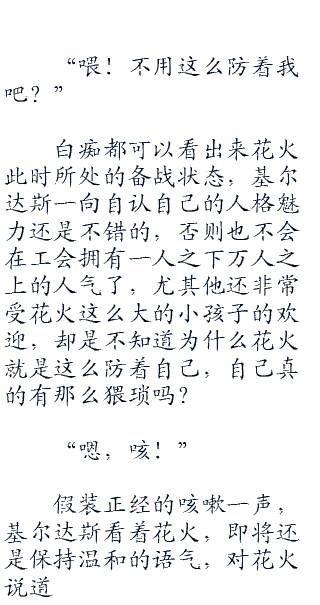 “喂！不用这么防着我
吧？”
白痴都可以看出来花火
此时所处的备战状态，基尔
达斯一向自认自己的人格魅
力还是不错的，否则也不会
在工会拥有一人之下万人之
上的人气了，尤其他还非常
受花火这么大的小孩子的欢
迎，却是不知道为什么花火
就是这么防着自己，自己真
的有那么猥琐吗？
“嗯，咳！”
假装正经的咳嗽一声，
基尔达斯看着花火，即将还
是保持温和的语气，对花火
说道